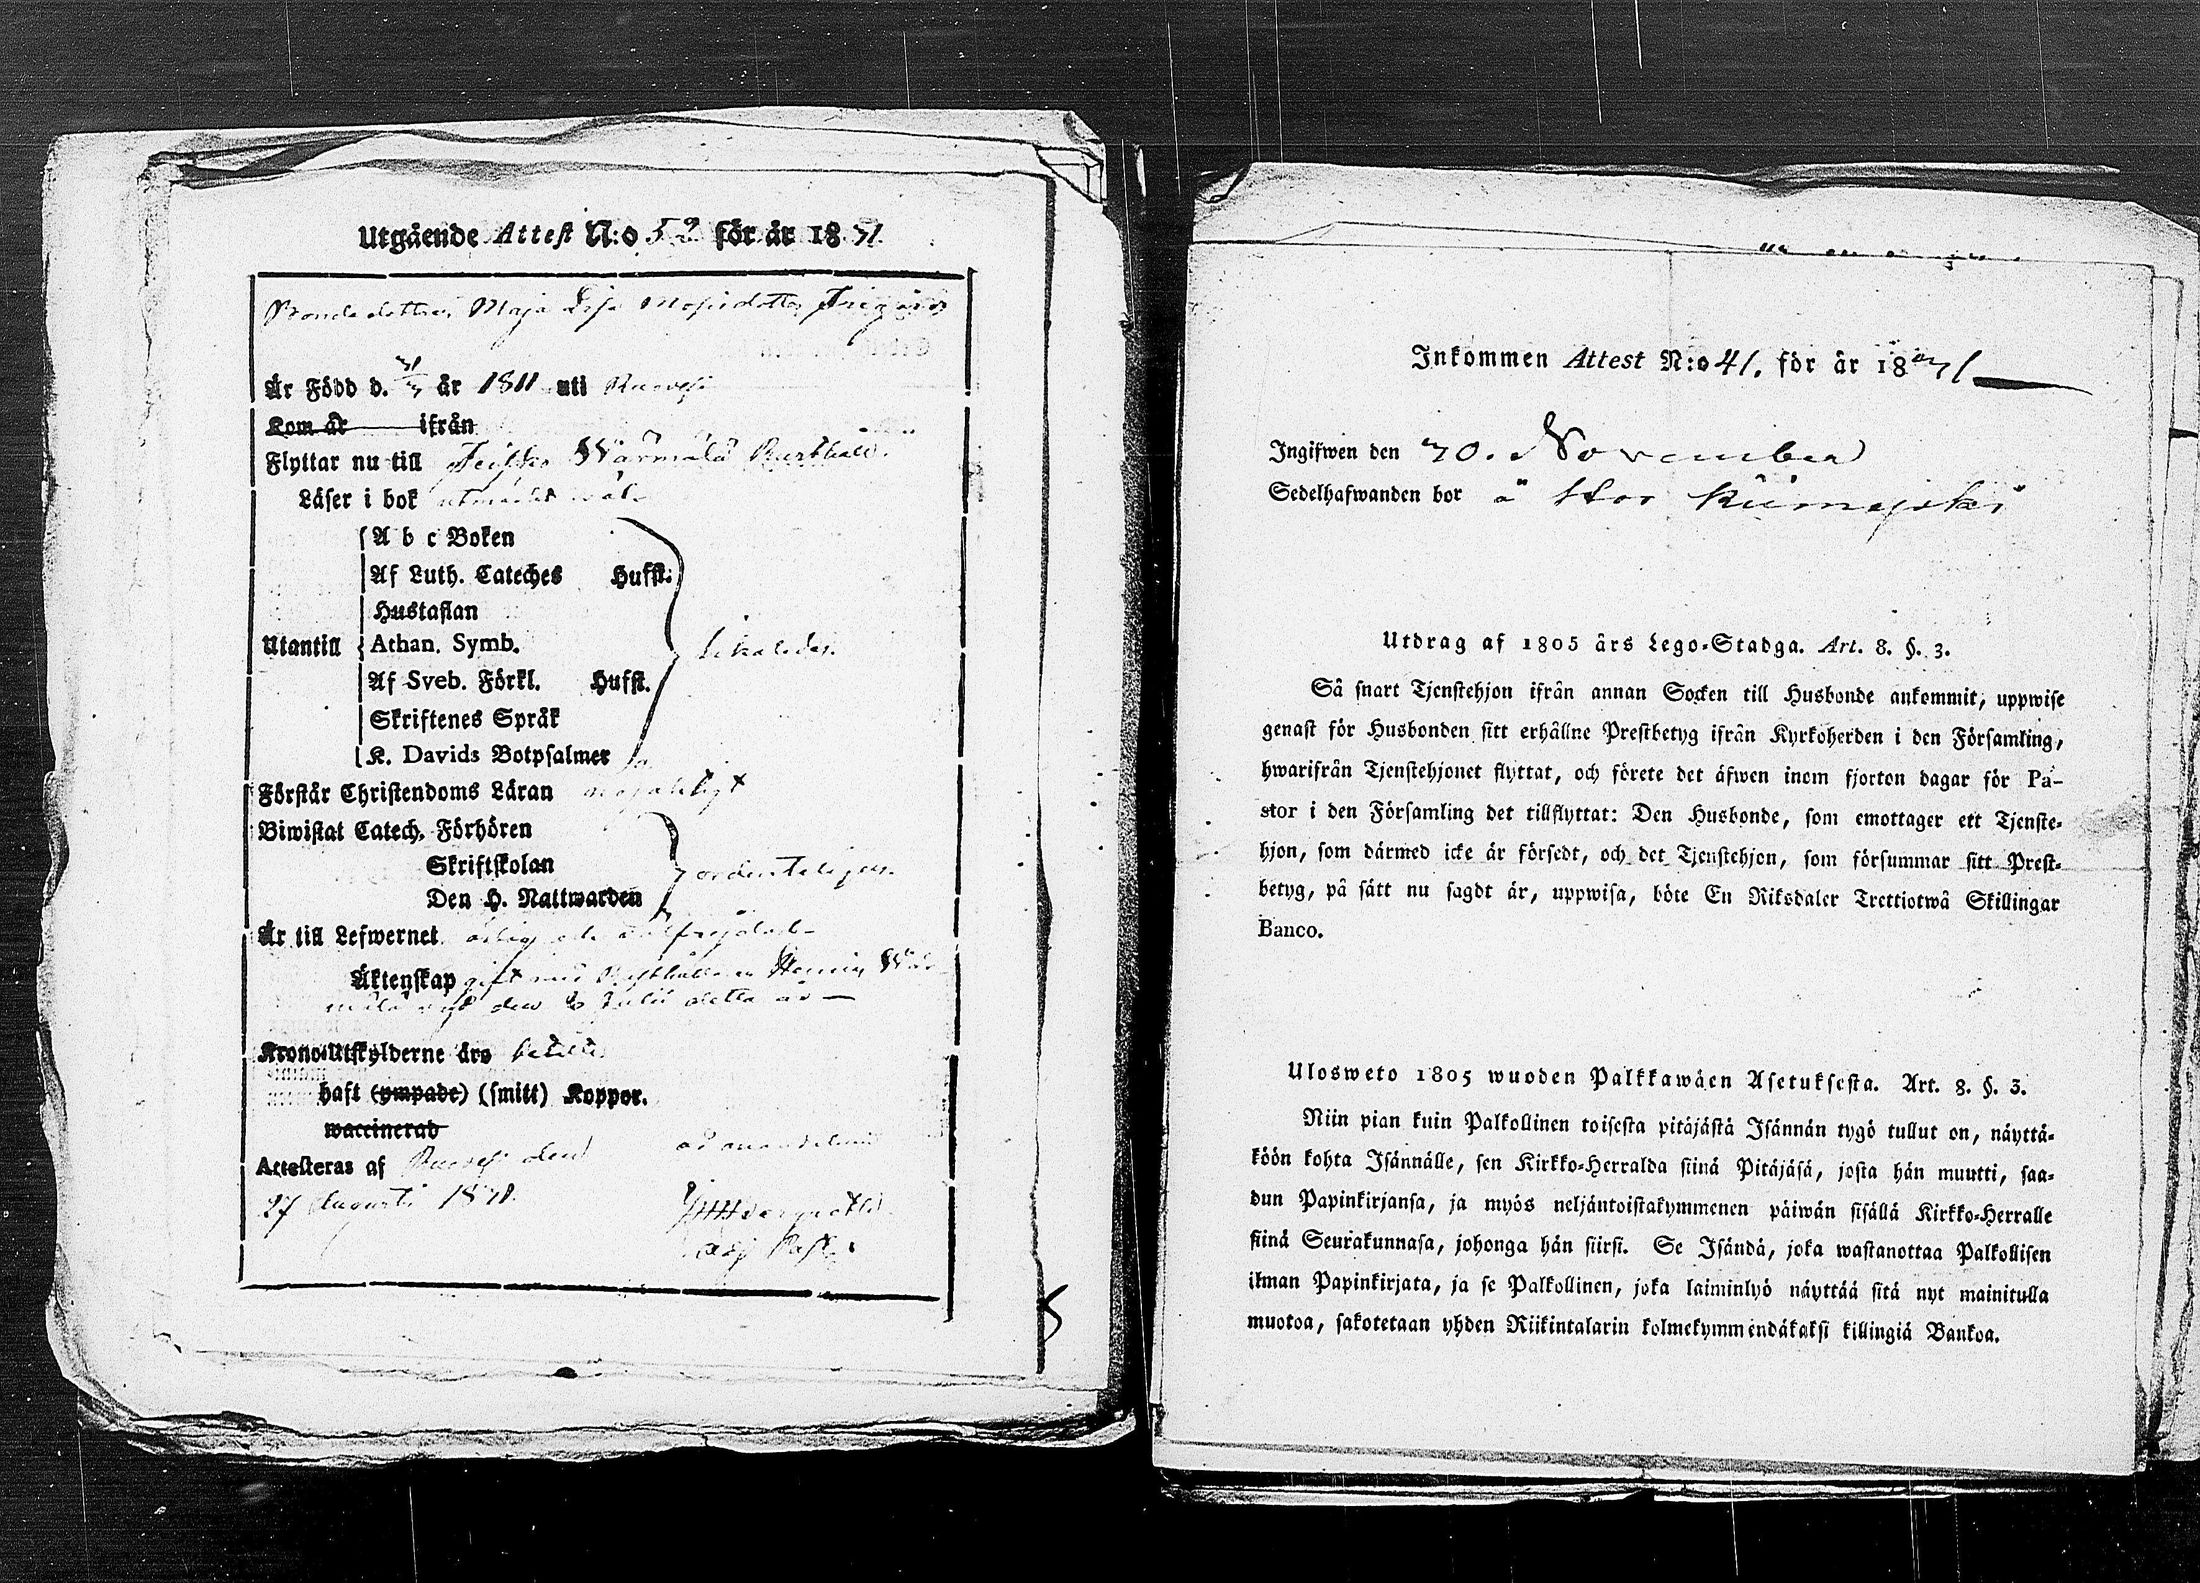 Utgående Attest N:o 52 för år 1831
Bondedottren Maja Lisa
Är Född d. 31/3 år 1811 uti Ruovesi
Kom år ifrån
Flyttar nu till Wärmälä Rusthåll.
Läser i bok
A b c Boken
Af Luth. Cateches Hufst.
Hustaflan
Utantill Athan. Symb.
Af Sveb. Förkl. Hufst.
Skriftenes Språk
K. Davids Botpsalmer
likaledes.
Förstår Christendoms Läran
Biwistat Catech. Förhören
Skriftskolan
Den H. Nattwarden
ordenteligen.
Är till Lefwernet ärlig och
Äktenskap gift med Rusthållaren Henric Wär-
mälä den 6 Julii detta år —
Krono-Utskylderne äro betalte
haft (ympade) (smitt) Koppor.
waccinerad
Attesteras af Ruovesi den
27 Augusti 1831.
Adj. Past.
Inkommen Attest N:o 41. för år 1831
Ingifwen den 30. November
Sedelhafwanden bor å Stor
Utdrag af 1805 års Lego-Stadga. Art. 8. §. 3.
Så snart Tjenstehjon ifrån annan Socken till Husbonde ankommit, uppwise
genast för Husbonden sitt erhållne Prestbetyg ifrån Kyrkoherden i den Församling,
hwarifrån Tjenstehjonet flyttat, och förete det äfwen inom fjorton dagar för Pa-
stor i den Församling det tillflyttat: Den Husbonde, som emottager ett Tjenste-
hjon, som därmed icke är försedt, och det Tjenstehjon, som försummar sitt Prest-
betyg, på sätt nu sagdt är, uppwisa, böte En Riksdaler Trettiotwå Skillingar
Banco.
Ulosweto 1805 wuoden Palkkawäen Asetuksesta. Art. 8. §. 3.
Niin pian kuin Palkollinen toisesta pitäjästä Isännän tygö tullut on, näyttä-
köön kohta Isännälle, sen Kirkko-Herralda siinä Pitäjäsä, josta hän muutti, saa-
dun Papinkirjansa, ja myös neljäntoistakymmenen päiwän sisällä Kirkko-Herralle
siinä Seurakunnasa, johonga hän siirsi. Se Isändä, joka wastanottaa Palkollisen
ilman Papinkirjata, ja se Palkollinen, joka laiminlyö näyttää sitä nyt mainitulla
muotoa, sakotetaan yhden Riikintalarin kolmekymmendäkaksi killingiä Bankoa.